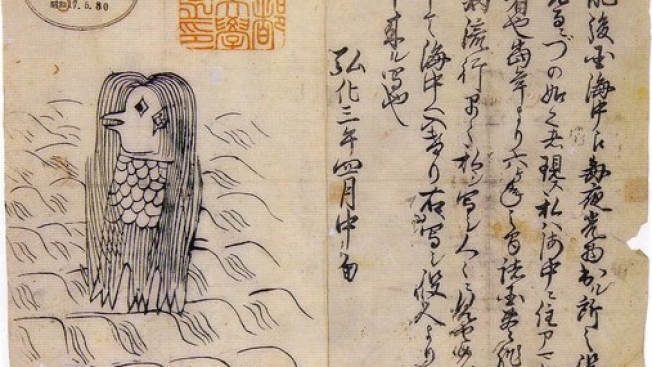 肥後国海中江毎夜光物出ル所之役
見るニづの如之者現ス私ハ海中ニ住アマ
者也当年より六ヶ年之間諸国豊作
病流行早々私写シ人々ニ見セ候
申て海中へ入けり右写シ役人より
申来ル写也
弘化三年四月中旬
昭和17.5.30